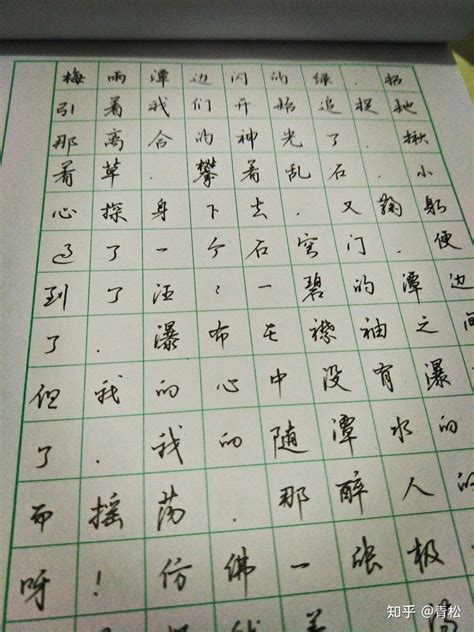 梅雨潭边闪的绿.招
引着我们开始追捉她
那离合的神光了.揪
着草.攀着乱石.小
心探身下去.又鞠躬
过了一个石穹门.便
到了汪汪一碧的潭边
了.瀑布在襟袖之间
但我的心中没有瀑
了.我的随潭水的
而摇荡.那醉人的
呀！仿佛一张极
知乎 @青松